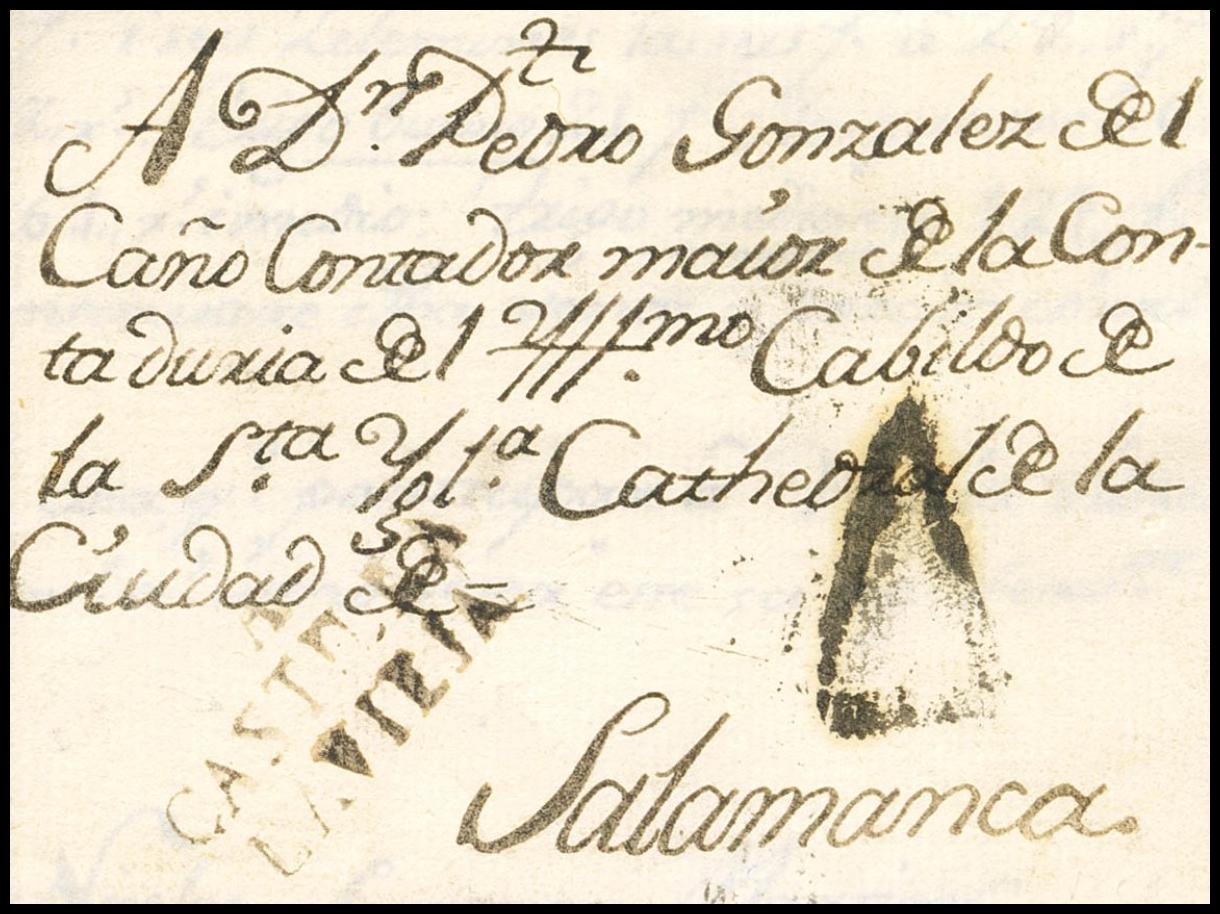 A Dn. Pedro Gonzalez del
Caño Contador maior de la Con-
taduria del Yllmo. Cabildo de
la Sta. Ygl.a Cathedral de la
Ciudad de
Salamanca.
CASTILLA
LA VIEJA